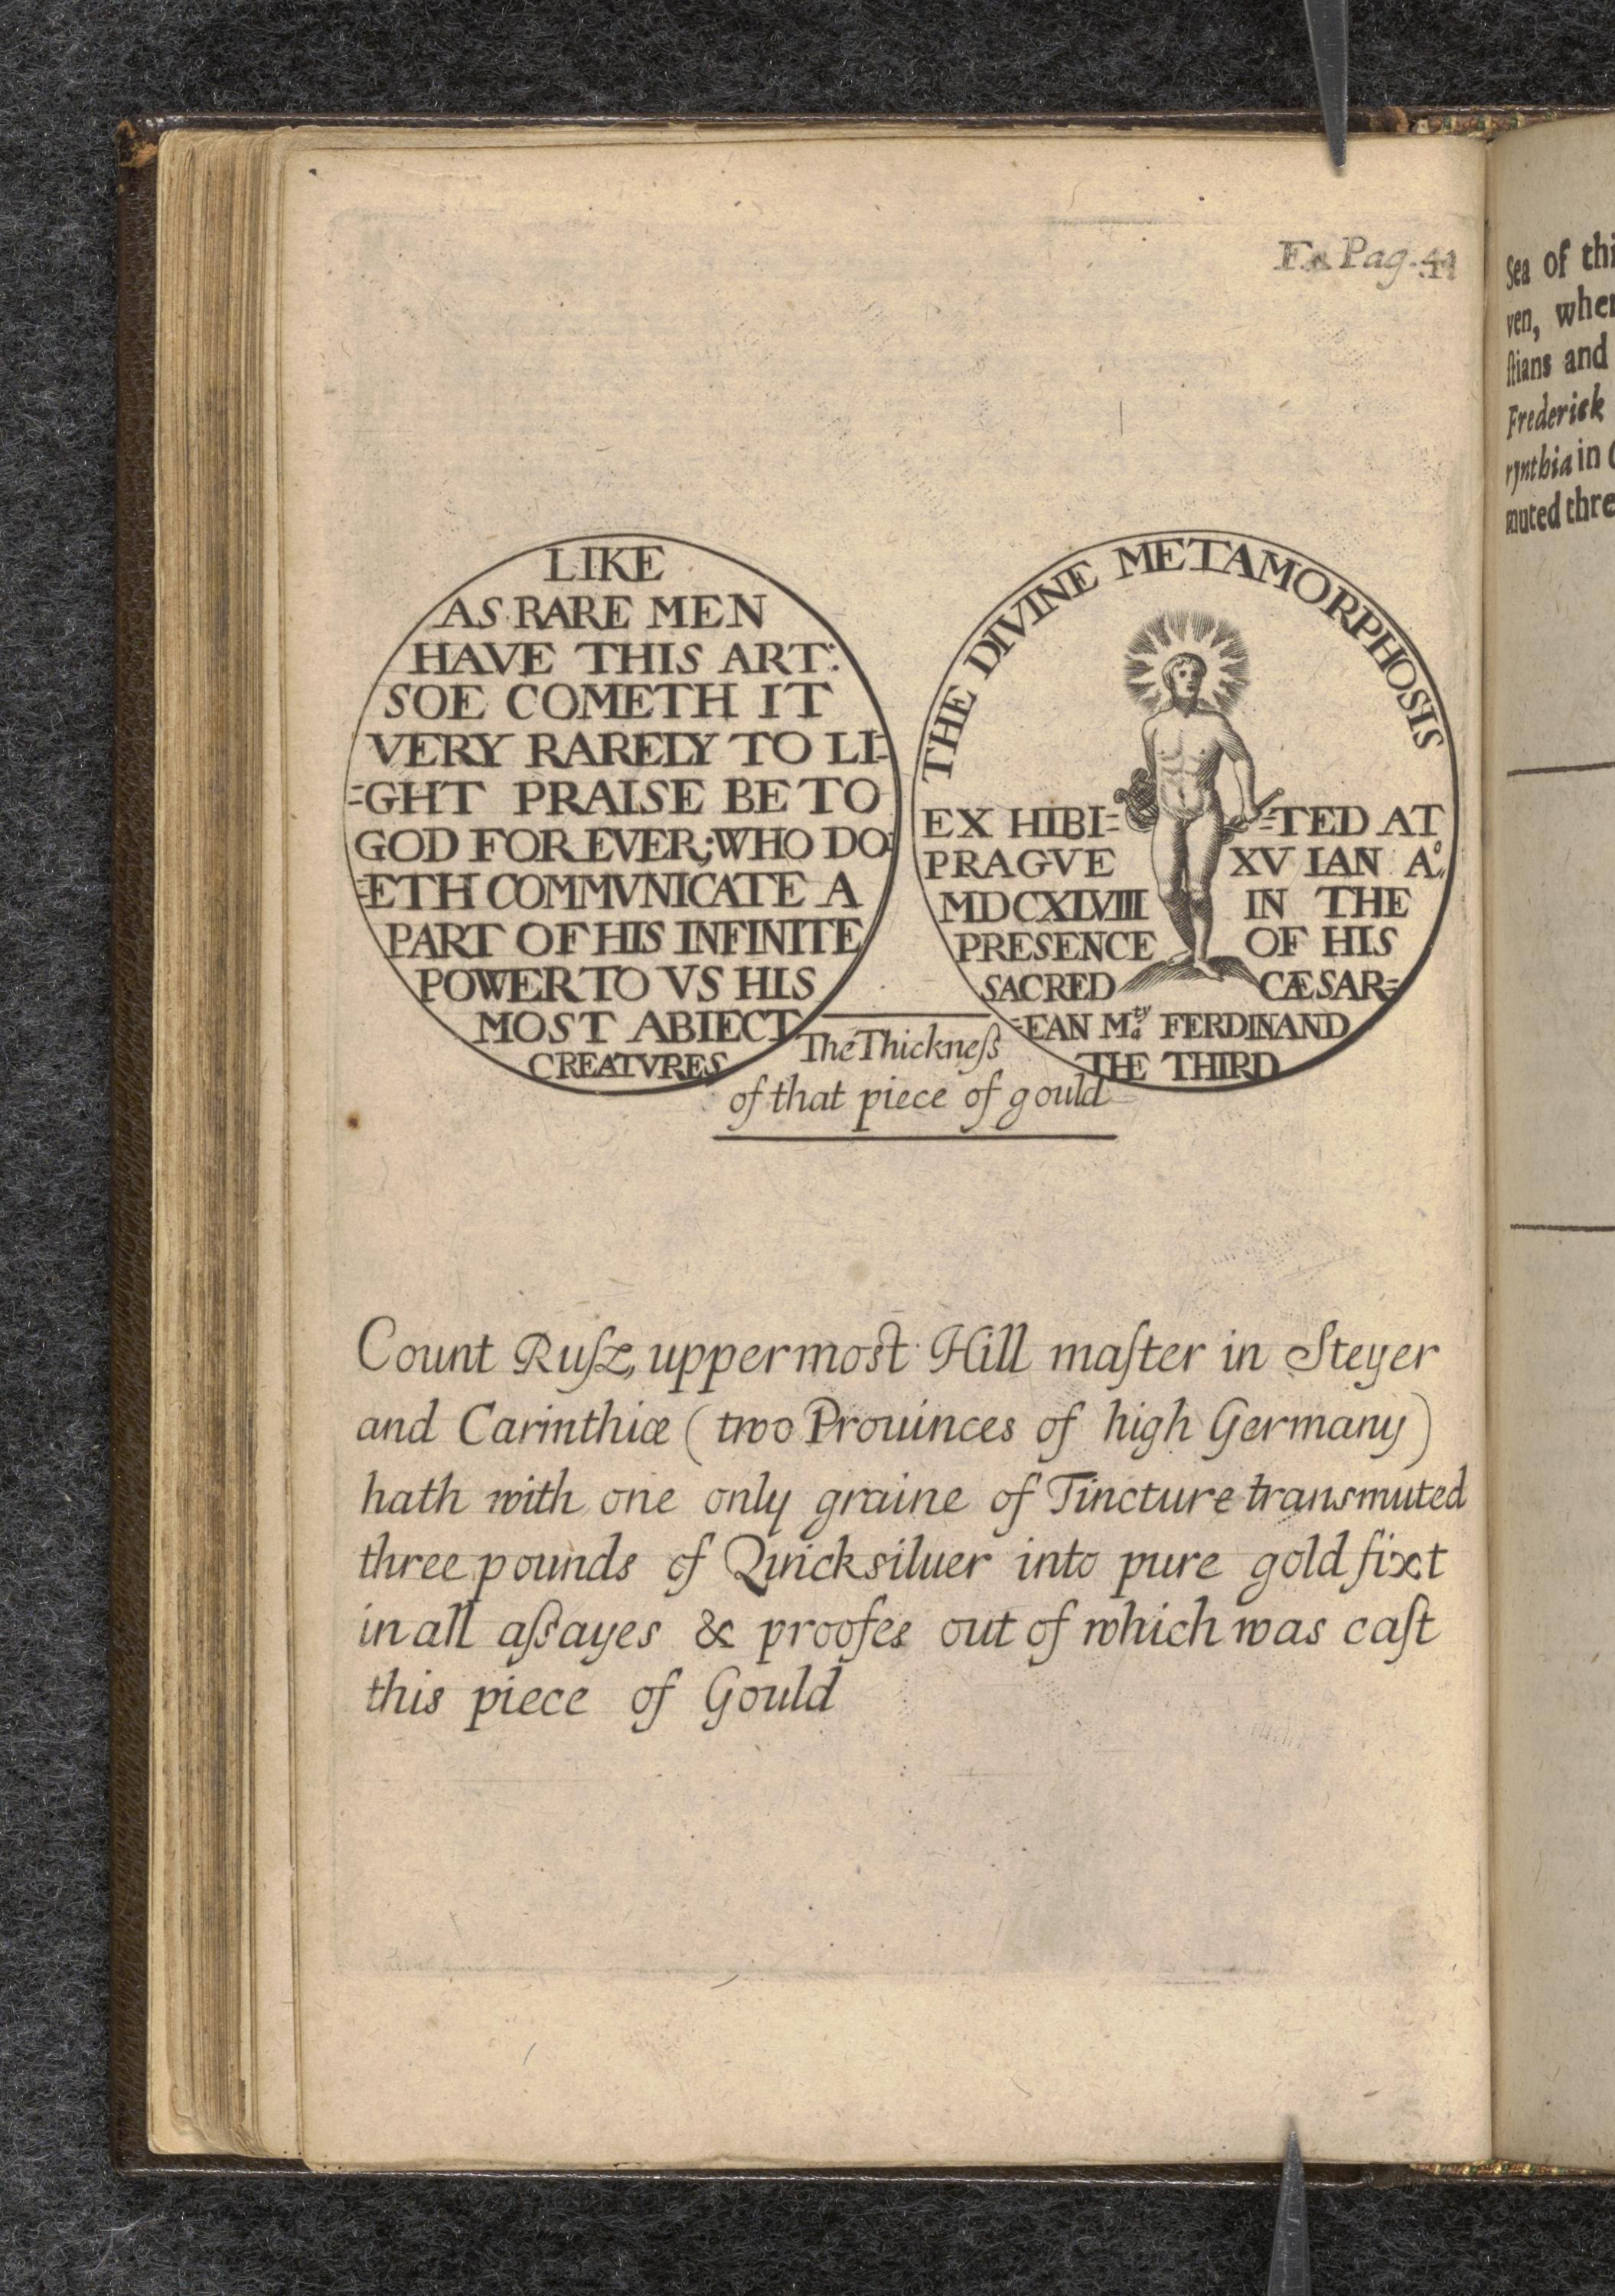 Pag. 41
LIKE
AS RARE MEN
HAVE THIS ART:
SOE COMETH IT
VERY RARELY TO LI=
=GHT PRAISE BE TO
GOD FOR EVER; WHO DO:
=ETH COMMVNICATE A
PART OF HIS INFINITE
POWER TO VS HIS
MOST ABIECT
CREATVRES
THE DIVINE METAMORPHOSIS
EXHIBI= =TED AT
PRAGVE XV IAN Aº,
MDCXLVIII IN THE
PRESENCE OF HIS
SACRED CÆSAR=
=EAN Ma.ty FERDINAND
THE THIRD
The Thickneſs
of that piece of gould
Count Ruſz, uppermost Hill maſter in Steyer
and Carinthiæ (two Prouinces of high Germany)
hath with one only graine of Tincture transmuted
three pounds of Quicksiluer into pure gold fixt
in all aſsayes & proofes out of which was caſt
this piece of Gould
Sea of thi
ven, wher
ſtians and
Frederick
rynthia in
muted thre